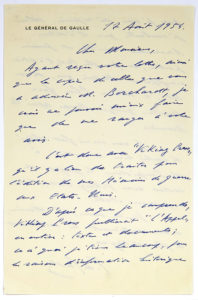 LE GÉNÉRAL DE GAULLE
17 Août 1954.
Cher Monsieur,
Ayant reçu votre lettre, ainsi
que la copie de celle que vous
a adressée M. Borchardt, je
crois ne pouvoir mieux faire
que de me ranger à votre
avis.
C'est donc avec "Viking Press"
qu'il y a lieu de traiter pour
l'édition de mes Mémoires de guerre
aux États-Unis.
D'après ce que je comprends,
Viking Press publierait "L'Appel"
en entier: texte et documents;
ce à quoi je tiens beaucoup, pour
la raison d'information historique